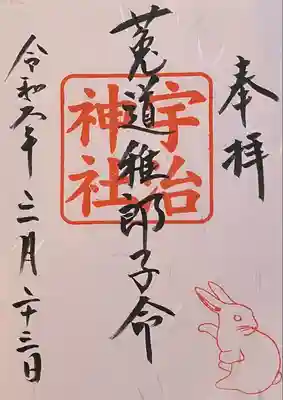 奉拝
菟道稚郎子命
宇治神社
令和六年三月二十三日